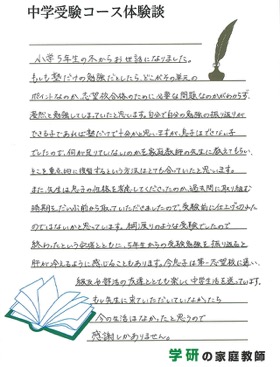 中学受験コース体験談
小学5年生の冬からお世話になりました。
もしも塾だけの勉強だとしたら、どこがその単元の
ポイントなのか、志望校合格のために必要な問題なのかがわからず、
漠然と勉強してしまっていたと思います。自分で自分の勉強の振り返りが
できる子であれば塾だけで十分かと思いますが、息子はできない子
でしたので、何が足りていないのかを家庭教師の先生に教えてもらい、
そこを重点的に復習するという方法はとても合っていたと思います。
また、先生は息子の性格を考慮してくださったのか、過去問に取り組む
時期をだいぶ前から取っていただきましたので、受験前に仕上げられた
のではないかと思っています。綱渡りのような受験でしたので
終わったという歓喜とともに、5年生からの受験勉強を振り返ると
肝が冷えるように感じることもあります。今息子は第一志望校に通い、
級友や部活の友達ととても楽しく中学生活を送っています。
もし先生に来ていただいていなかったら
今の生活はなかったと思うので
感謝しかありません。
学研の家庭教師